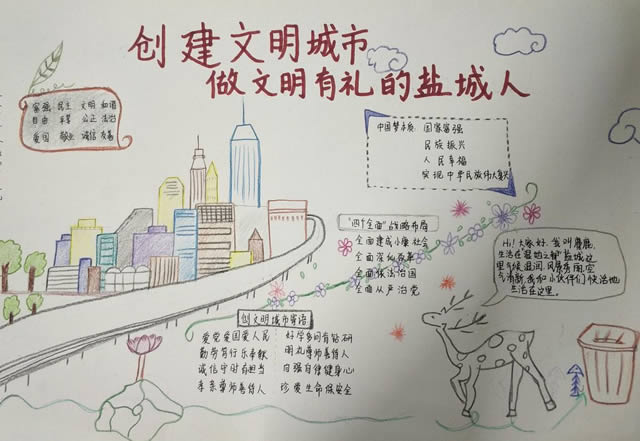 创建文明城市
做文明有礼的盐城人
富强 民主 文明 和谐
自由 平等 公正 法治
爱国 敬业 诚信 友善
中国梦本质: 国家富强
民族振兴
人民幸福
实现中华民族伟大复兴
"四个全面"战略布局
全面建成小康社会
全面深化改革
全面依法治国
全面从严治党
Hi! 大家好, 我叫麋鹿,
生活在"湿地之都"盐城,这
里气候温润,风景秀丽,空
气清新,我和小伙伴们快活地
生活在这里。
创文明城市寄语
爱党爱国爱人民 好学多问有钻研
勤劳笃行乐奉献 明礼尊师善待人
诚信守时有担当 自强自律健身心
孝亲尊师善待人 珍爱生命保安全